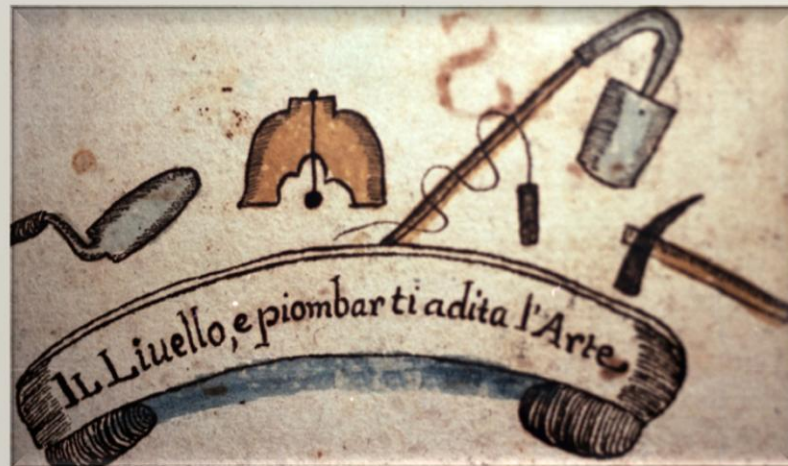 IL Liuello, e piombar ti adita l'Arte